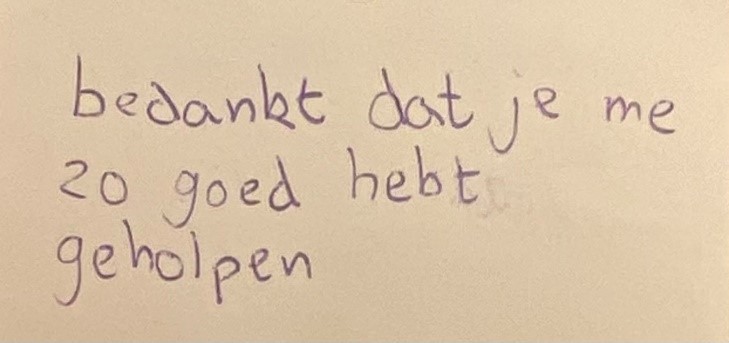 bedankt dat je me
zo goed hebt
geholpen